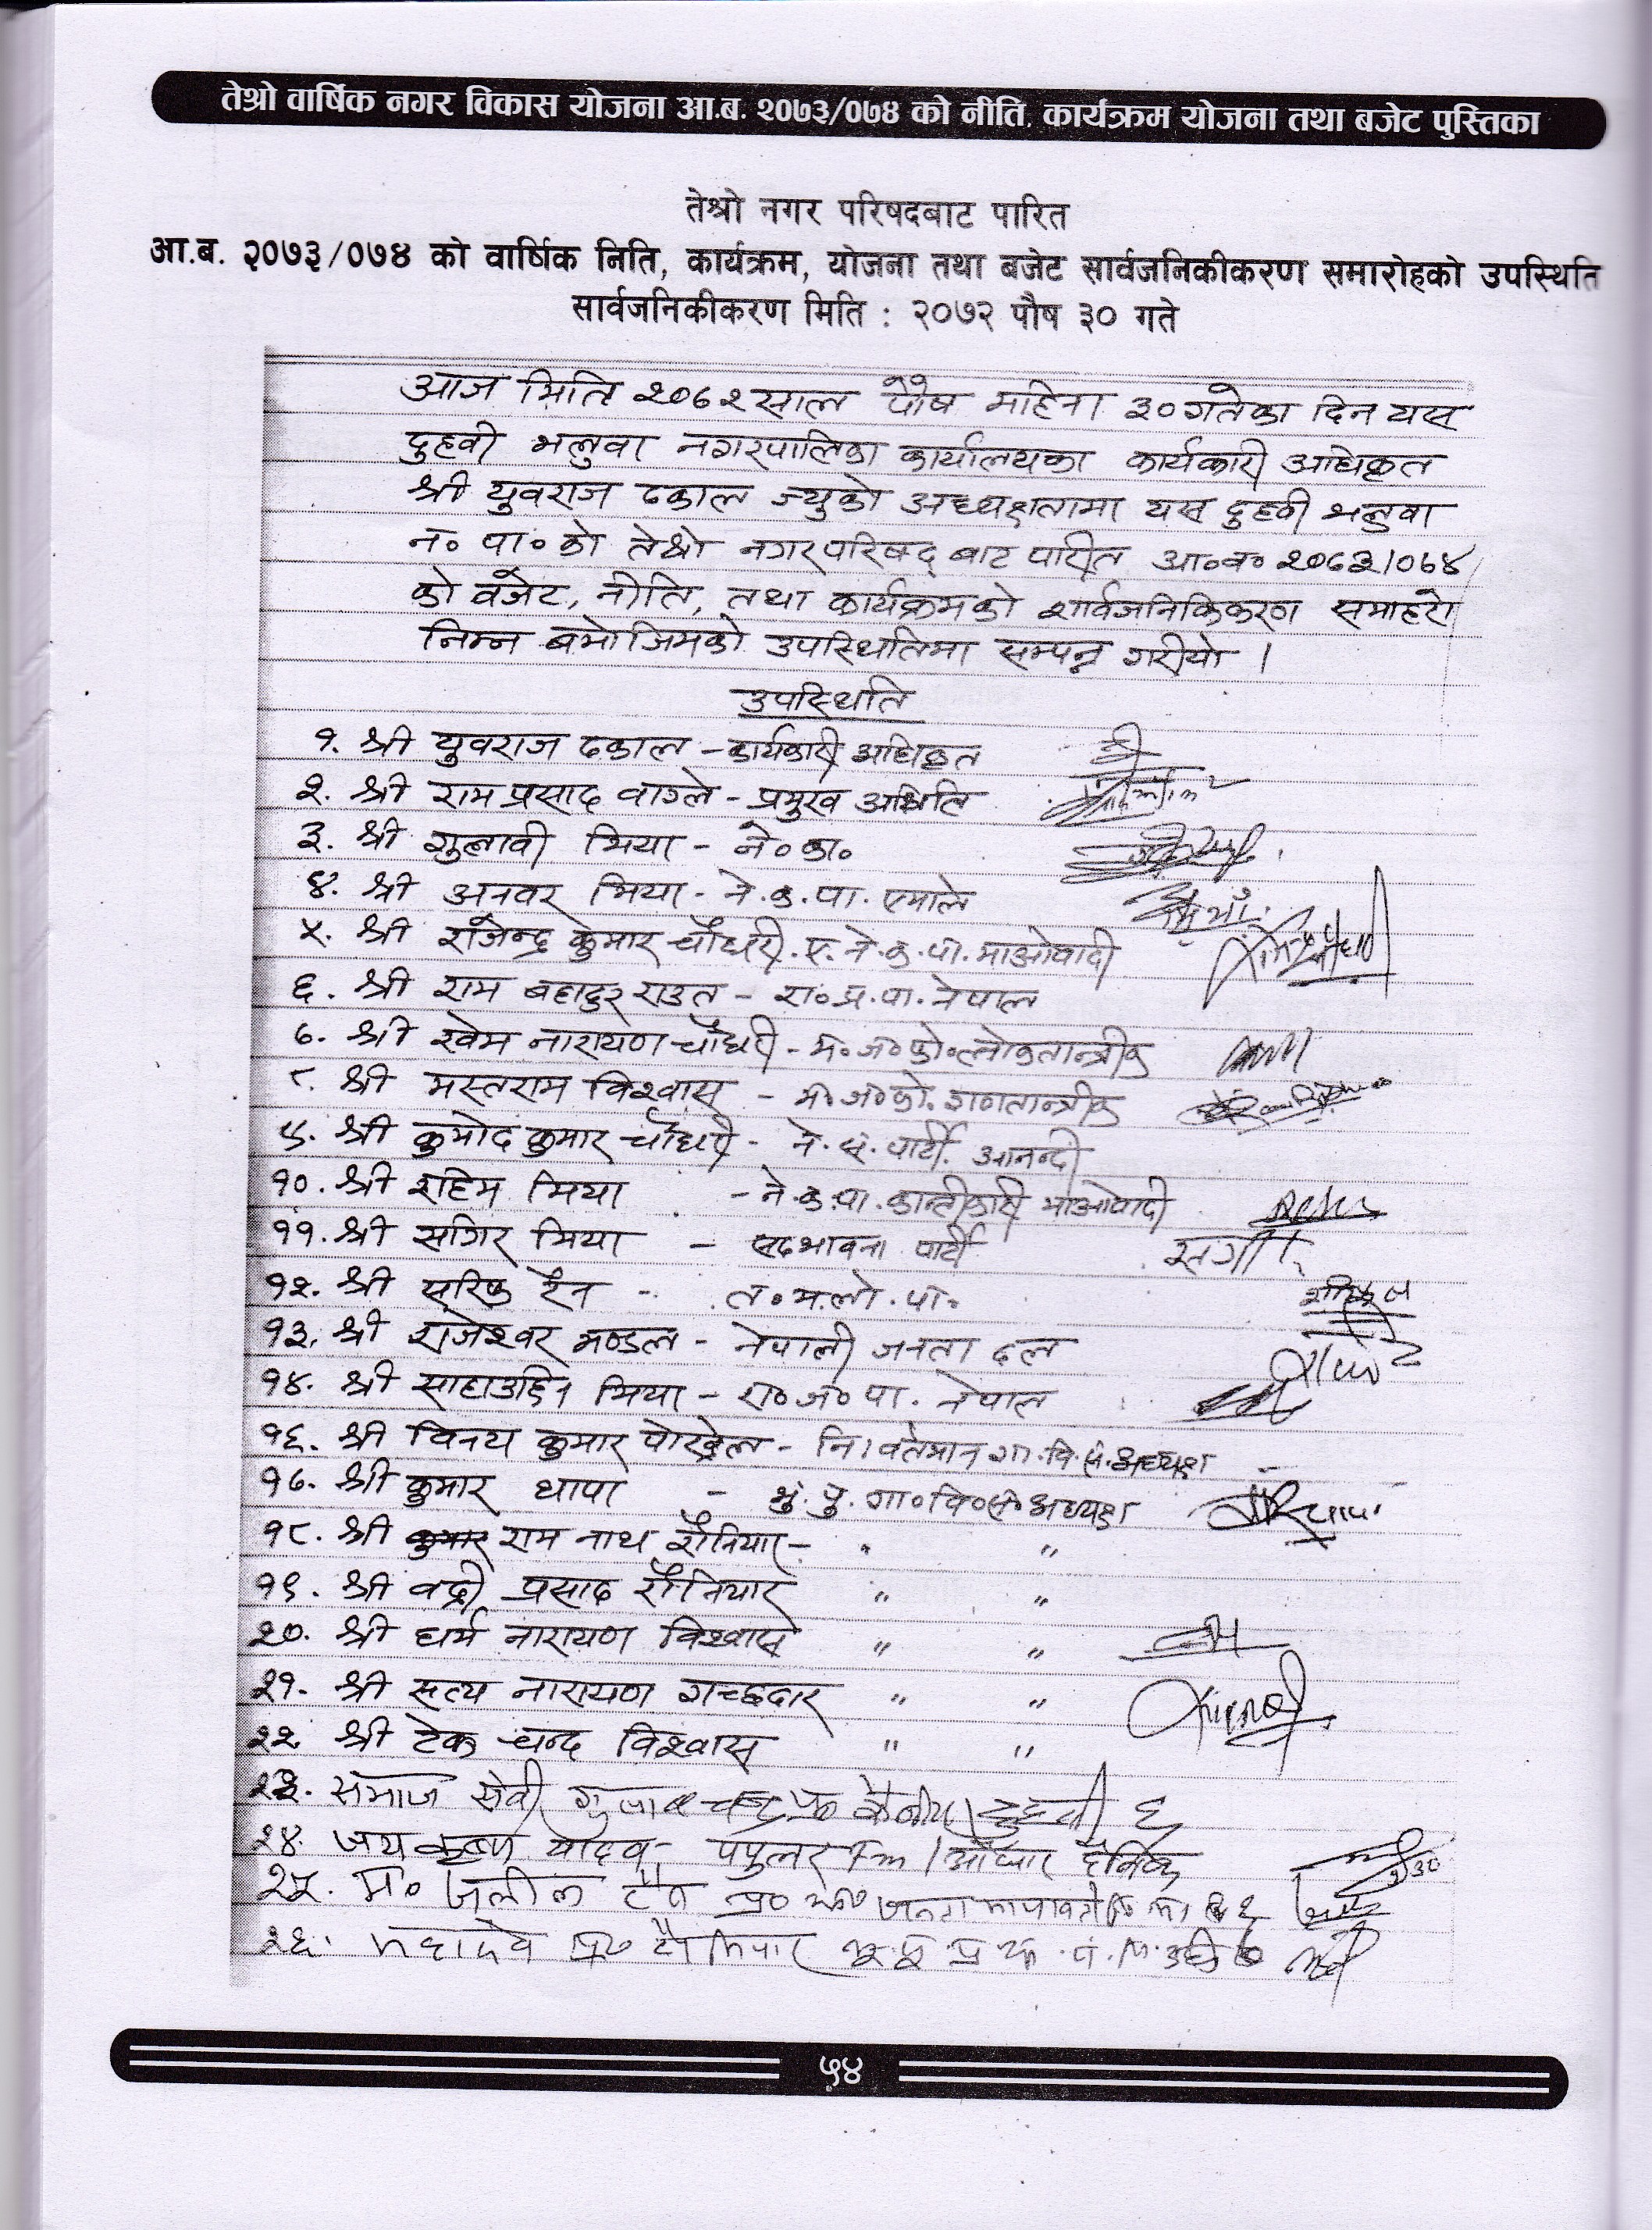 तेश्रो वार्षिक नगर विकास योजना आ.ब. २०७३/०७४ को नीति. कार्यक्रम योजना तथा बजेट पुस्तिका
तेश्रो नगर परिषदबाट पारित
आ.ब. २०७३/०७४ को वार्षिक निति, कार्यक्रम, योजना तथा बजेट सार्वजनिकीकरण समारोहको उपस्थिति
सार्वजनिकीकरण मिति : २०७२ पौष ३० गते
आज मिति २०७२ साल पौष महिना ३० गतेका दिन यस
दुहवी भलुवा नगरपालिका कार्यालयका कार्यकारी अधिकृत
श्री युवराज ढकाल ज्युको अध्यक्षतामा यस दुहवी भलुवा
न० पा० को तेश्रो नगर परिषद् बाट पारीत आ०व० २०७३/०७४
को वजेट, नीति, तथा कार्यक्रमको शार्वजनिकिकरण समाहरो
निम्न बमोजिमको उपस्थितिमा सम्पन्न गरीयो ।
उपस्थिति
१. श्री युवराज ढकाल - कार्यकारी अधिकृत
२. श्री राम प्रसाद वाग्ले - प्रमुख अतिथि
३. श्री गुलावी मिया - ने० का०
४. श्री अनवर मिया - ने. क. पा. एमाले
५. श्री राजेन्द्र कुमार चौधरी. ए. ने. क. पा. माओवादी
६. श्री राम बहादुर राउत - रा० प्र. पा. नेपाल
७. श्री खेम नारायण चौधरी - म० ज० फो० लोकतान्त्रीक
८. श्री मस्तराम विश्वास - म० ज० फो. गणतान्त्रीक
९. श्री कुमोद कुमार चौधरी - ने. स. पार्टी. आनन्दी
१०. श्री रहिम मिया - ने. क. पा. क्रान्तीकारी माओवादी
११. श्री सगिर मिया - सदभावना पार्टी
१२. श्री सरिफ रैन - त० म. लो. पा०
१३. श्री राजेश्वर मण्डल - नेपाली जनता दल
१४. श्री साहाउद्दिन मिया - रा० ज० पा. नेपाल
१६. श्री विनय कुमार पोखेल - नि। वर्तमान गा. वि. स. अध्यक्ष
१७. श्री कुमार थापा - भु. पु. गा० वि० स० अध्यक्ष
१८. श्री राम नाथ रौनियार - " "
१९. श्री वद्री प्रसाद रौनियार " "
२०. श्री धर्म नारायण विश्वास " "
२१. श्री सत्य नारायण गच्छदार " "
२२. श्री टेक चन्द विश्वास " "
२३. समाज सेवी गुलाब चन्द्र दुहवी ६
२४. जयकृष्ण यादव - पपुलर Fm
२५. म० जलील
२६. महादेव
५४